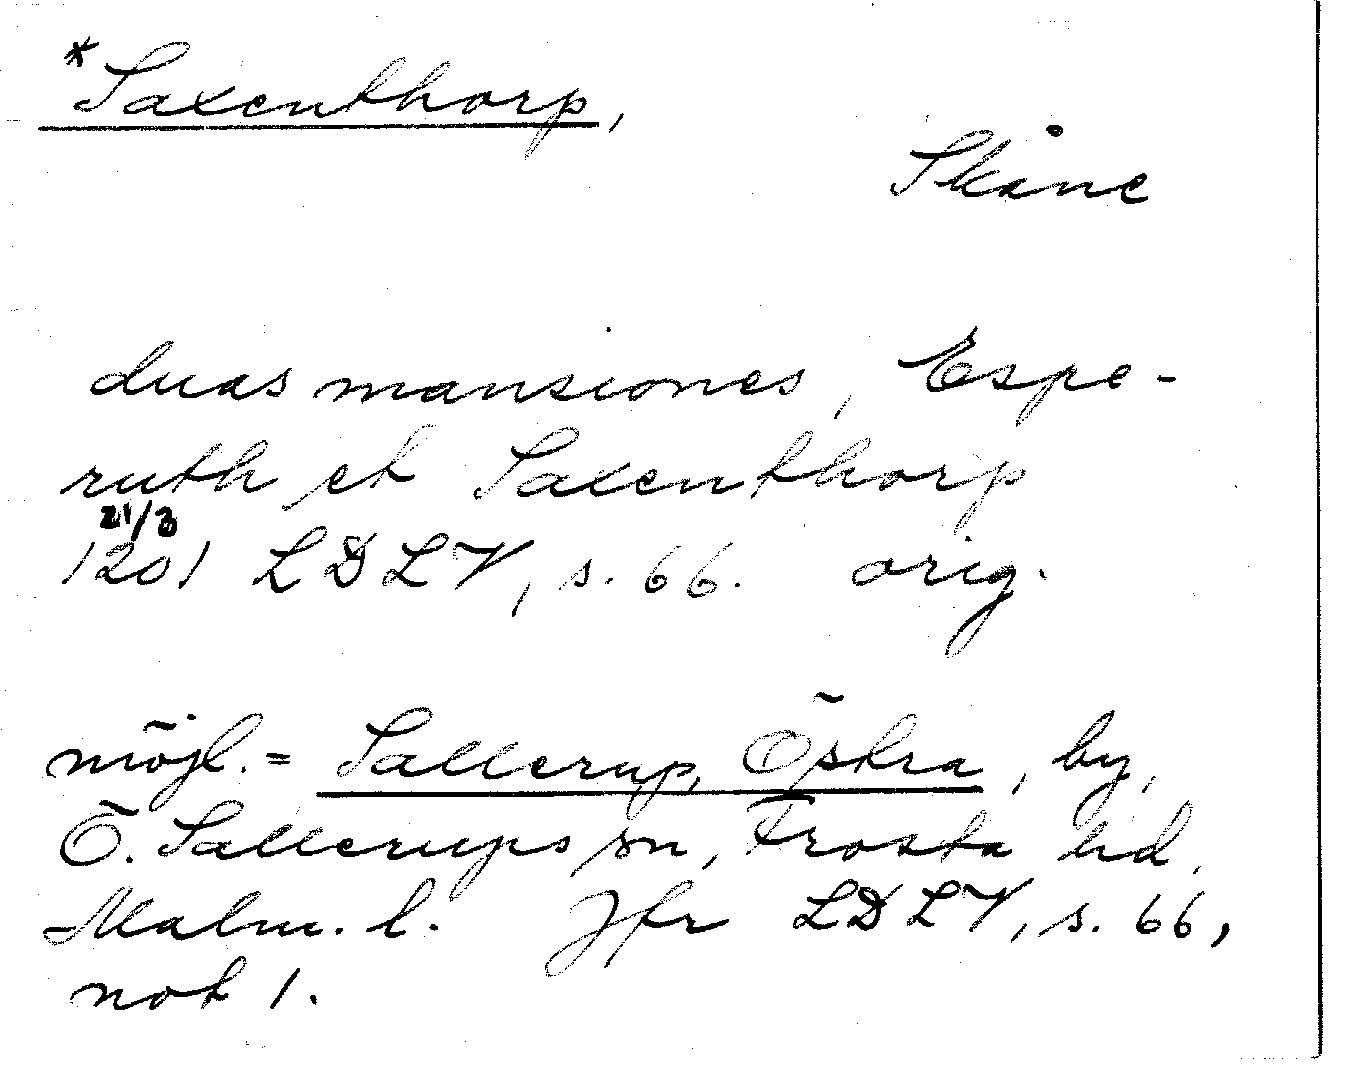 *Saxenthorp,
Skåne
duas mansiones, Espe-
ruth et Saxenthorp
21/3
1201 LDLV, s. 66. orig.
möjl. = Sallerup, Östra, by,
Ö. Sallerups sn, Frosta hd,
Malm. l. Jfr LDLV, s. 66,
not 1.